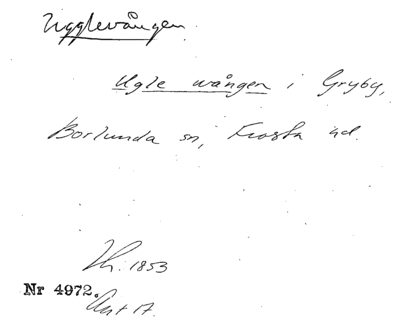 Ugglevången
Ugle wången i Gryby,
Borlunda sn, Frosta hd.
Th. 1853
Nr 4972.
17.